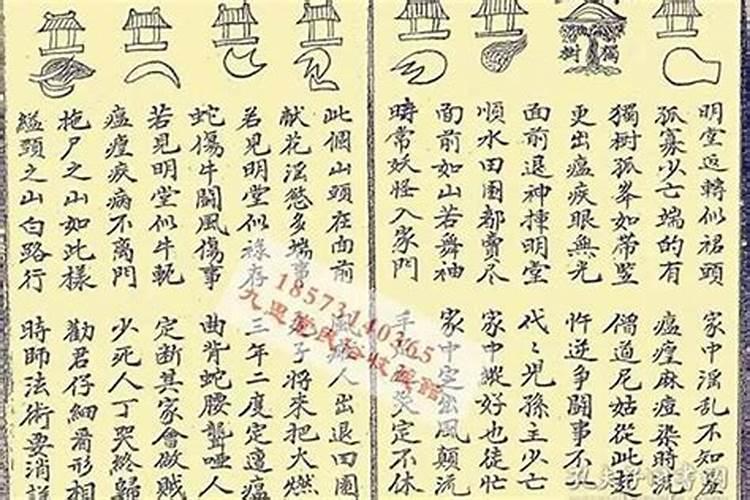 獨樹
明堂返轉似裙頭 家中淫乱不知羞
孤寡少亡端的有 瘟瘟麻痘染時流
獨樹孤峯如带竖 僧道尼姑從此起
更出瘟疾眼無光 忤逆争鬪事不
面前退神揀明堂 代々兒孫主少亡
順水田園都賣尽 家中縱好也徒忙
面前如山若舞袖 家中定出風顛流
時常妖怪入家門 手 哭定不休
此個山頭在面前 人出退田園
献花淫慾多端事 子將來把火燃
若見明堂似祿存 三年二度定遭瘟
蛇傷牛鬪風傷事 曲背蛇腰聾啞人
若見明堂似牛軛 定断其家會做賊
瘟瘴疾病不离門 少死人丁哭終歸
拖尸之山如此樣 勸君仔細看形相
縊頭之山白路行 時師法術要消詳
18573140365
民俗收藏館
孔夫子旧书网